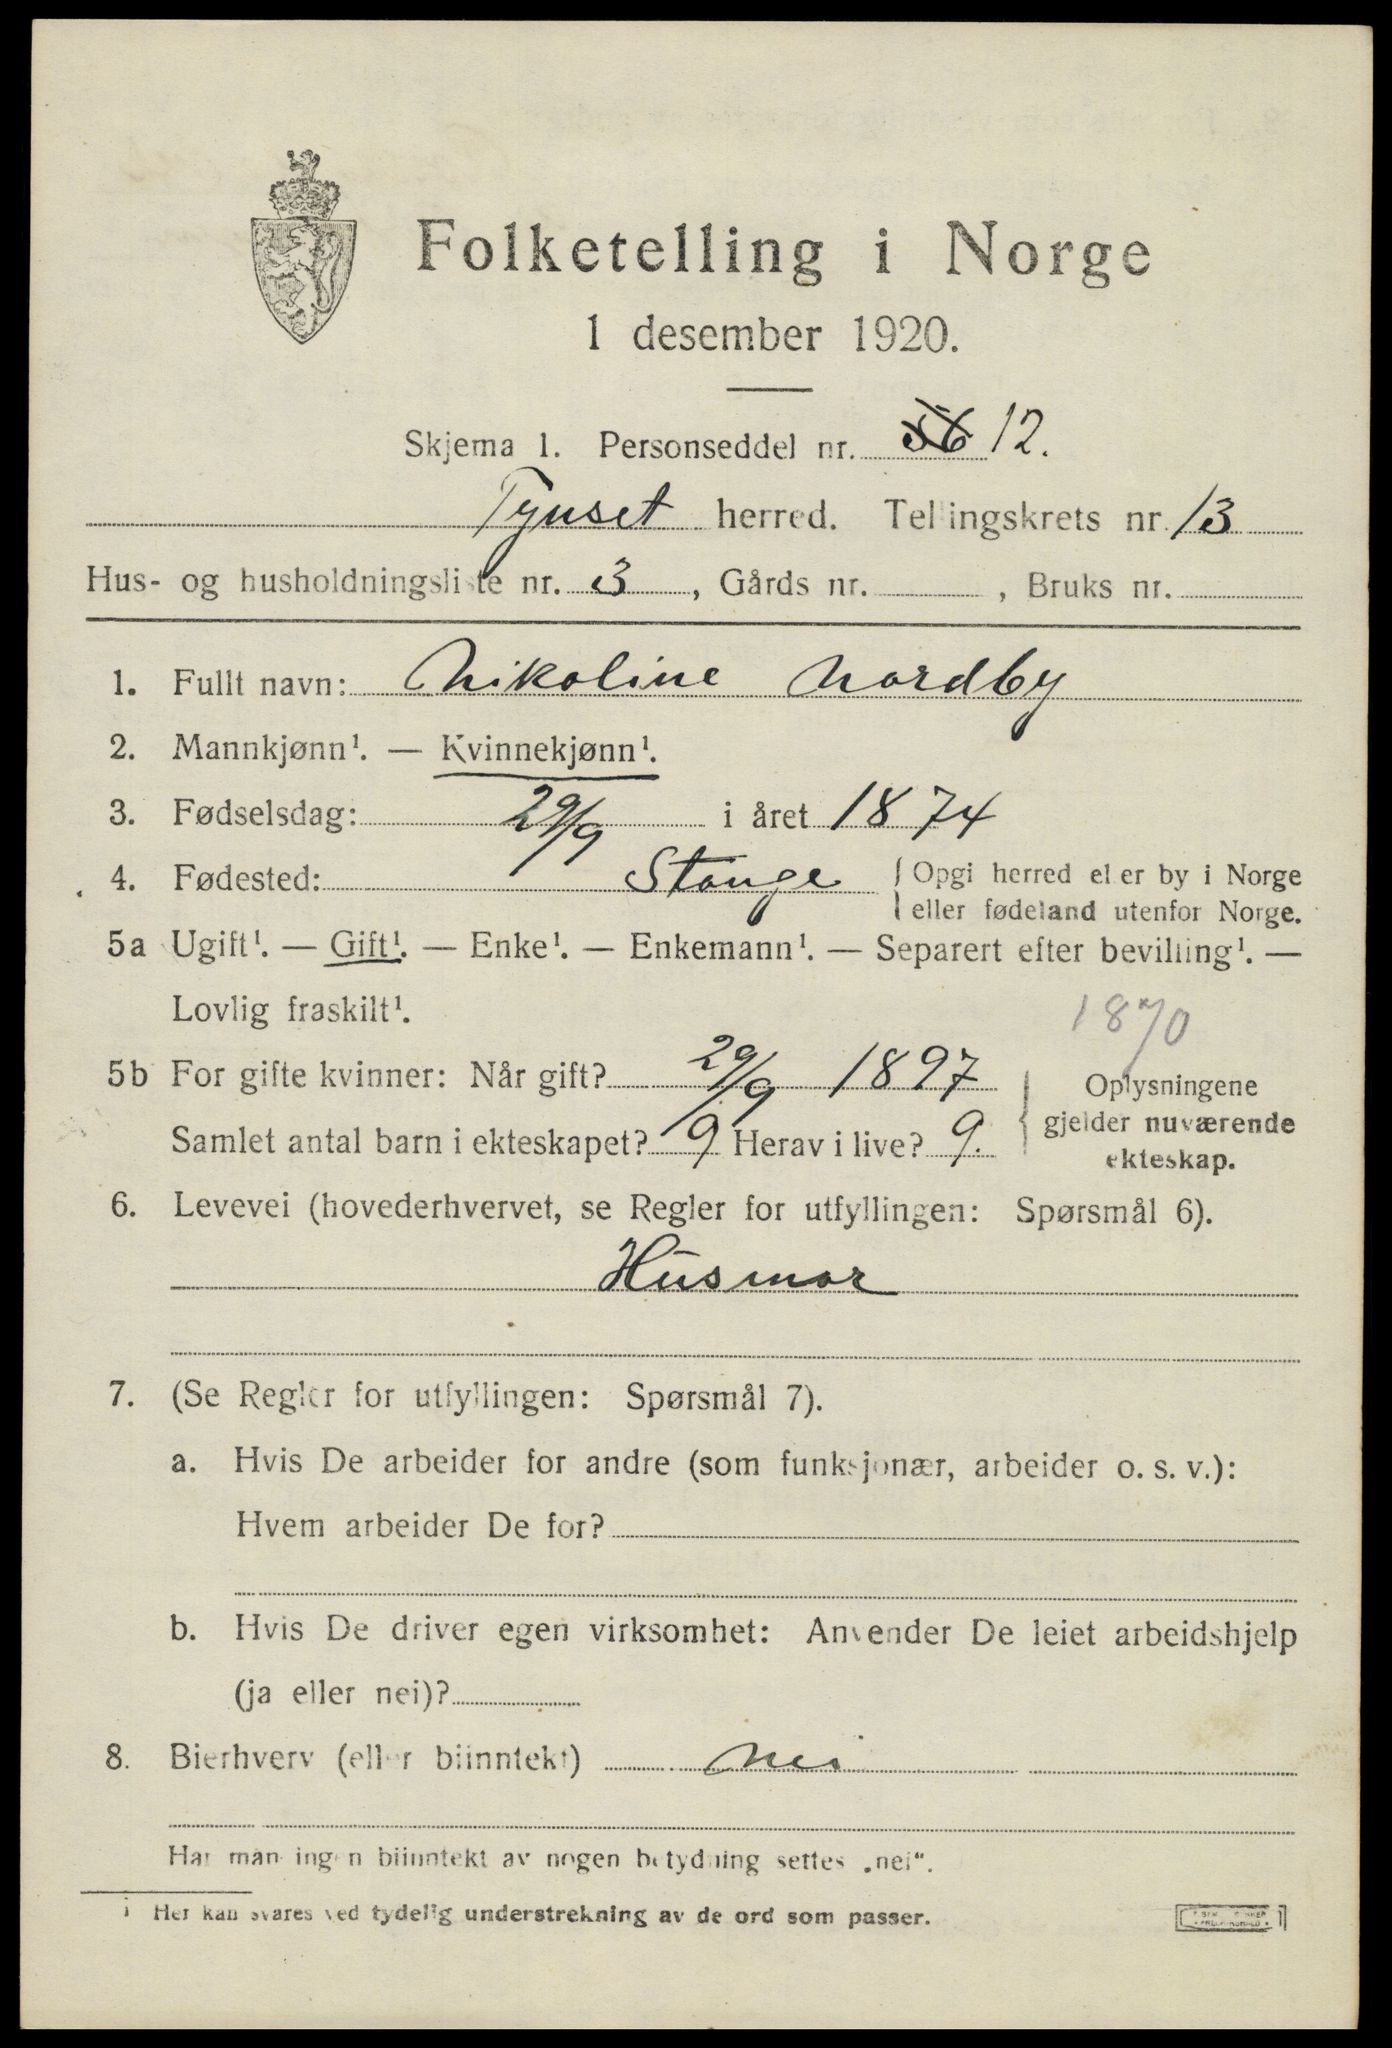 Folketelling i Norge
1 desember 1920.
Skjema 1. Personseddel nr. 56 12.
Tynset herred. Tellingskrets nr. 13
Hus- og husholdningsliste nr. 3, Gårds nr. , Bruks nr.
1. Fullt navn: Nikoline Nordby
2. Mannkjønn¹. — Kvinnekjønn¹.
3. Fødselsdag: 29/9 i året 1874
4. Fødested: Stange { Opgi herred eller by i Norge
eller fødeland utenfor Norge.
5a Ugift¹. — Gift¹. — Enke¹. — Enkemann¹. — Separert efter bevilling¹. —
Lovlig fraskilt¹.
1870
5b For gifte kvinner: Når gift? 29/9 1897 { Oplysningene
gjelder nuværende
Samlet antal barn i ekteskapet? 9 Herav i live? 9.
ekteskap.
6. Levevei (hovederhvervet, se Regler for utfyllingen: Spørsmål 6).
Husmor
7. (Se Regler for utfyllingen: Spørsmål 7).
a. Hvis De arbeider for andre (som funksjonær, arbeider o. s. v.):
Hvem arbeider De for?
b. Hvis De driver egen virksomhet: Anvender De leiet arbeidshjelp
(ja eller nei)?
8. Bierhverv (eller biinntekt) nei
Har man ingen biinntekt av nogen betydning settes „nei“.
¹ Her kan svares ved tydelig understrekning av de ord som passer.